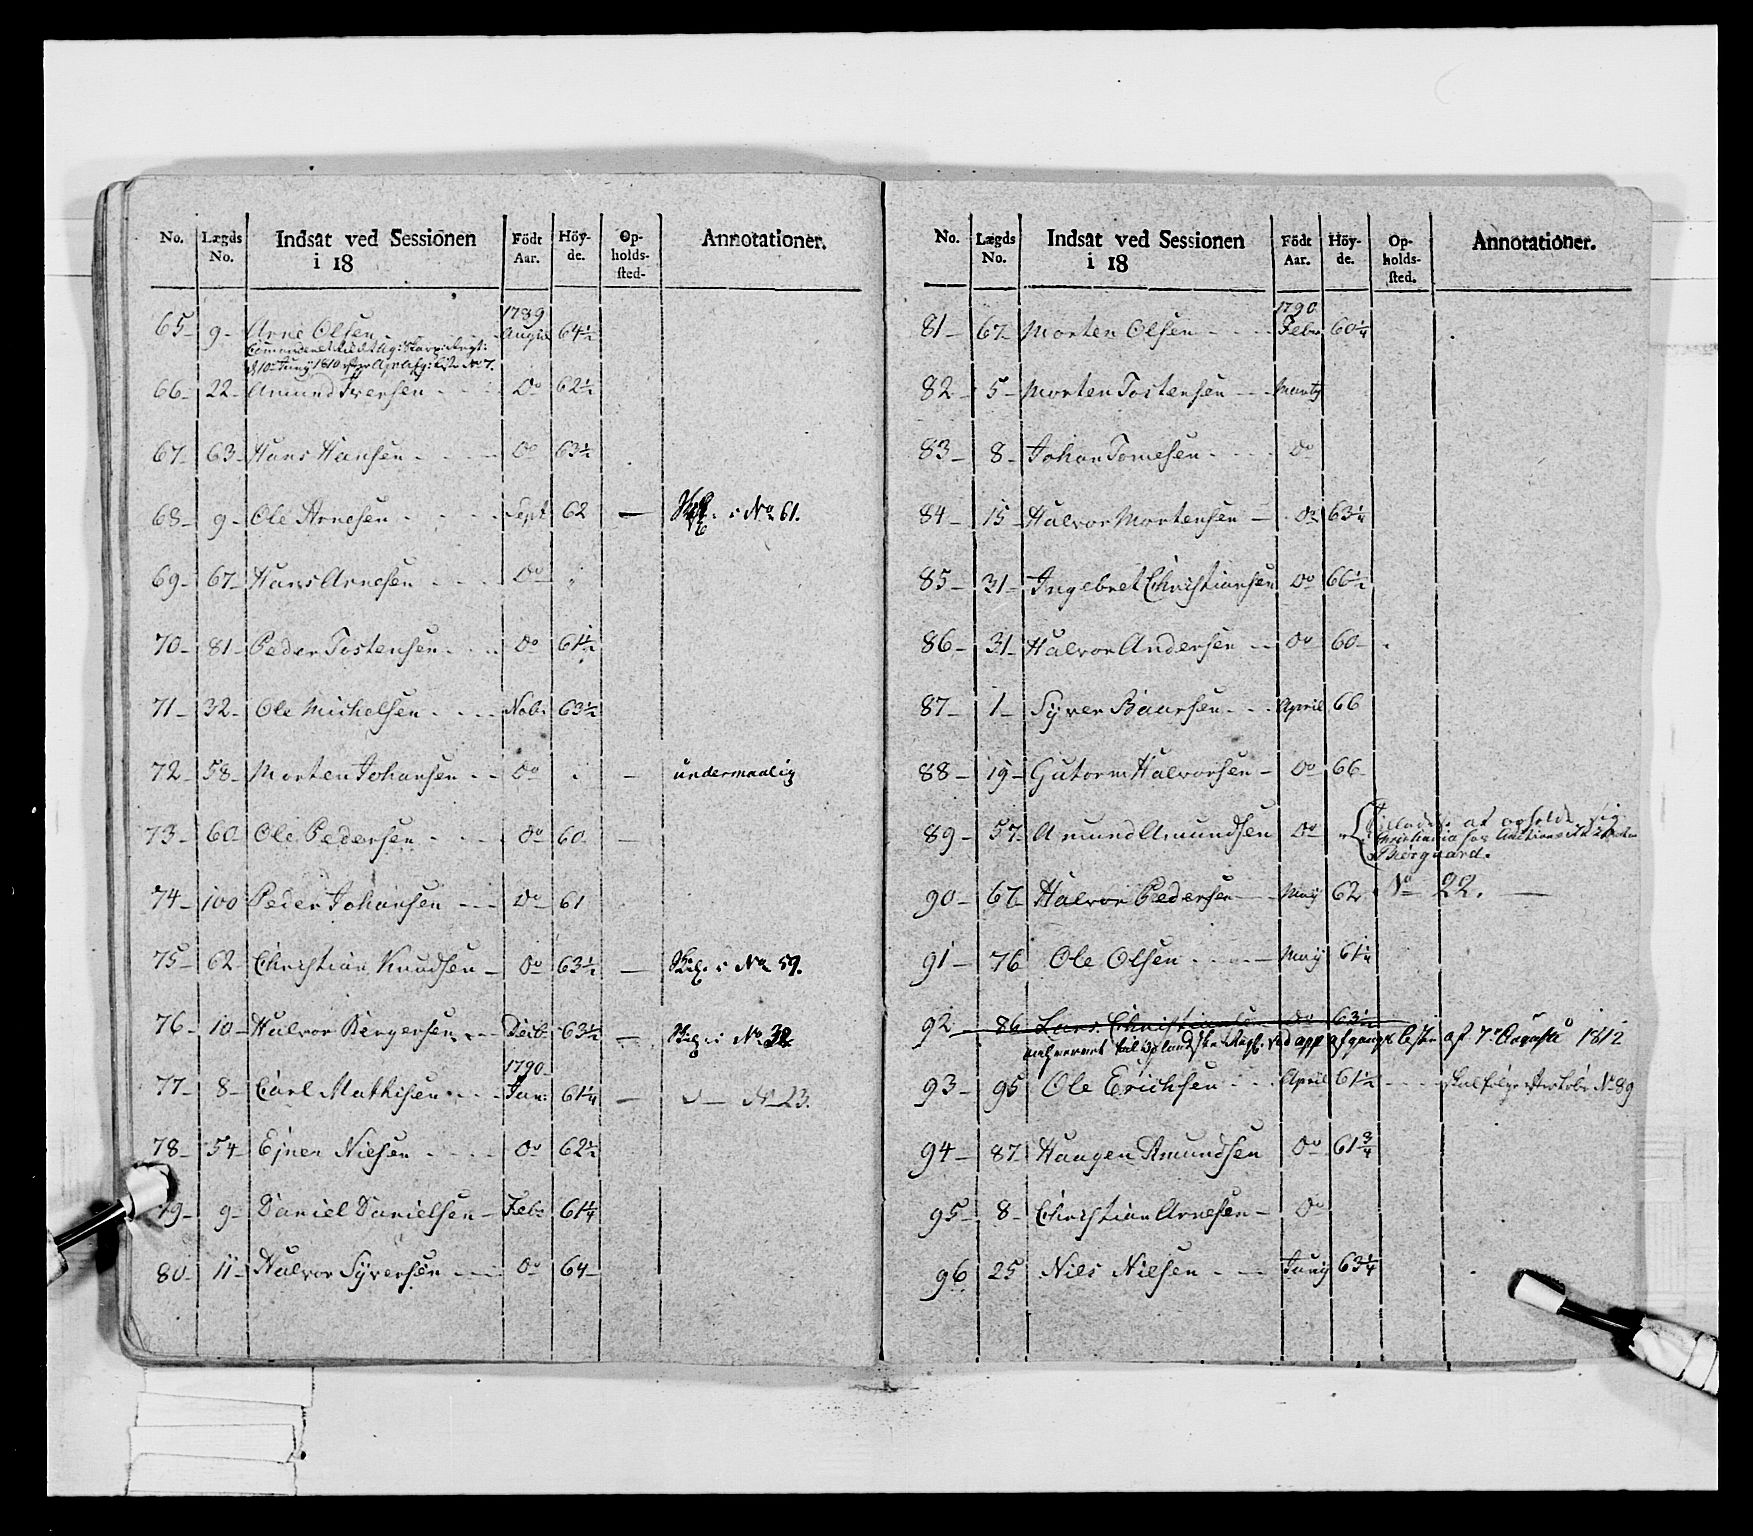 No. Lægds No. Indsat ved Sessionen i 18 Födt Aar. Höyde. Opholdssted. Annotationer.
65 - 9 - Arne Olsen - - - 1789 August 64½
66 - 22 - Amund Iversen - - Do 62½
67 - 63 - Hans Hansen - - - Do 63½
68 - 9 - Ole Arnesen - - - Sept 62 — i No 61.
69 - 67 - Hans Arnesen - - - Do "
70 - 81 - Peder Tostensen - - - Do 61½
71 - 32 - Ole Michelsen - - - Nob: 63½
72 - 58 - Morten Johansen - - Do - undermaalig
73 - 60 Ole Pedersen - - - Do 60 —
74 - 100 Peder Johansen - - - Do 61
75 - 62 Christian Knudsen - Do 63½ — i No 59.
76 - 10 - Halvor Birgersen - - Decb: 63½ — i No 32
77 - 8 - Carl Mathisen - - - 1790 Jan: 61¼ — No 23.
78 - 54 Ejner Nielsen - - - Do 62½
79 - 9 - Daniel Danielsen - Febr 61¼
80 - 11 - Halvor Syversen - - - Do 64 -
No. Lægds No. Indsat ved Sessionen i 18 Födt Aar. Höyde. Opholdssted. Annotationer.
81 - 67 Morten Olsen - - - 1790 Febr 60¼
82 - 5 - Morten Tostensen - - - Martz
83 - 8 - Johan Tomesen - - - Do
84 - 15 - Halvor Mortensen - Do 63¼
85 - 31 - Ingebret Christiansen Do 66½
86 - 31 - Halvor Andersen - - Do 60 -
87 - 1 - Syver Baarsen - - - April 66
88 - 19 - Gutorm Halvorsen - Do 66
89 - 57 - Amund Amundsen Do " at opholde sig
Christiania
Borgaard.
90 - 67 - Halvor Pedersen - - May 62 No 22. —
91 - 76 Ole Olsen - - - May 61¼
92 - 86 Lars Christiansen Do 63½
til Oplandske Regt. ved app afgangs Liste af 7de Augusti 1812
93 - 95 Ole Erichsen - - - April 61½ - - - skal følge No 89
94 - 87 Haagen Amundsen Do 61¾
95 - 8 - Christian Arnesen - Do
96 25 Niels Nielsen - - - Juny 63¼